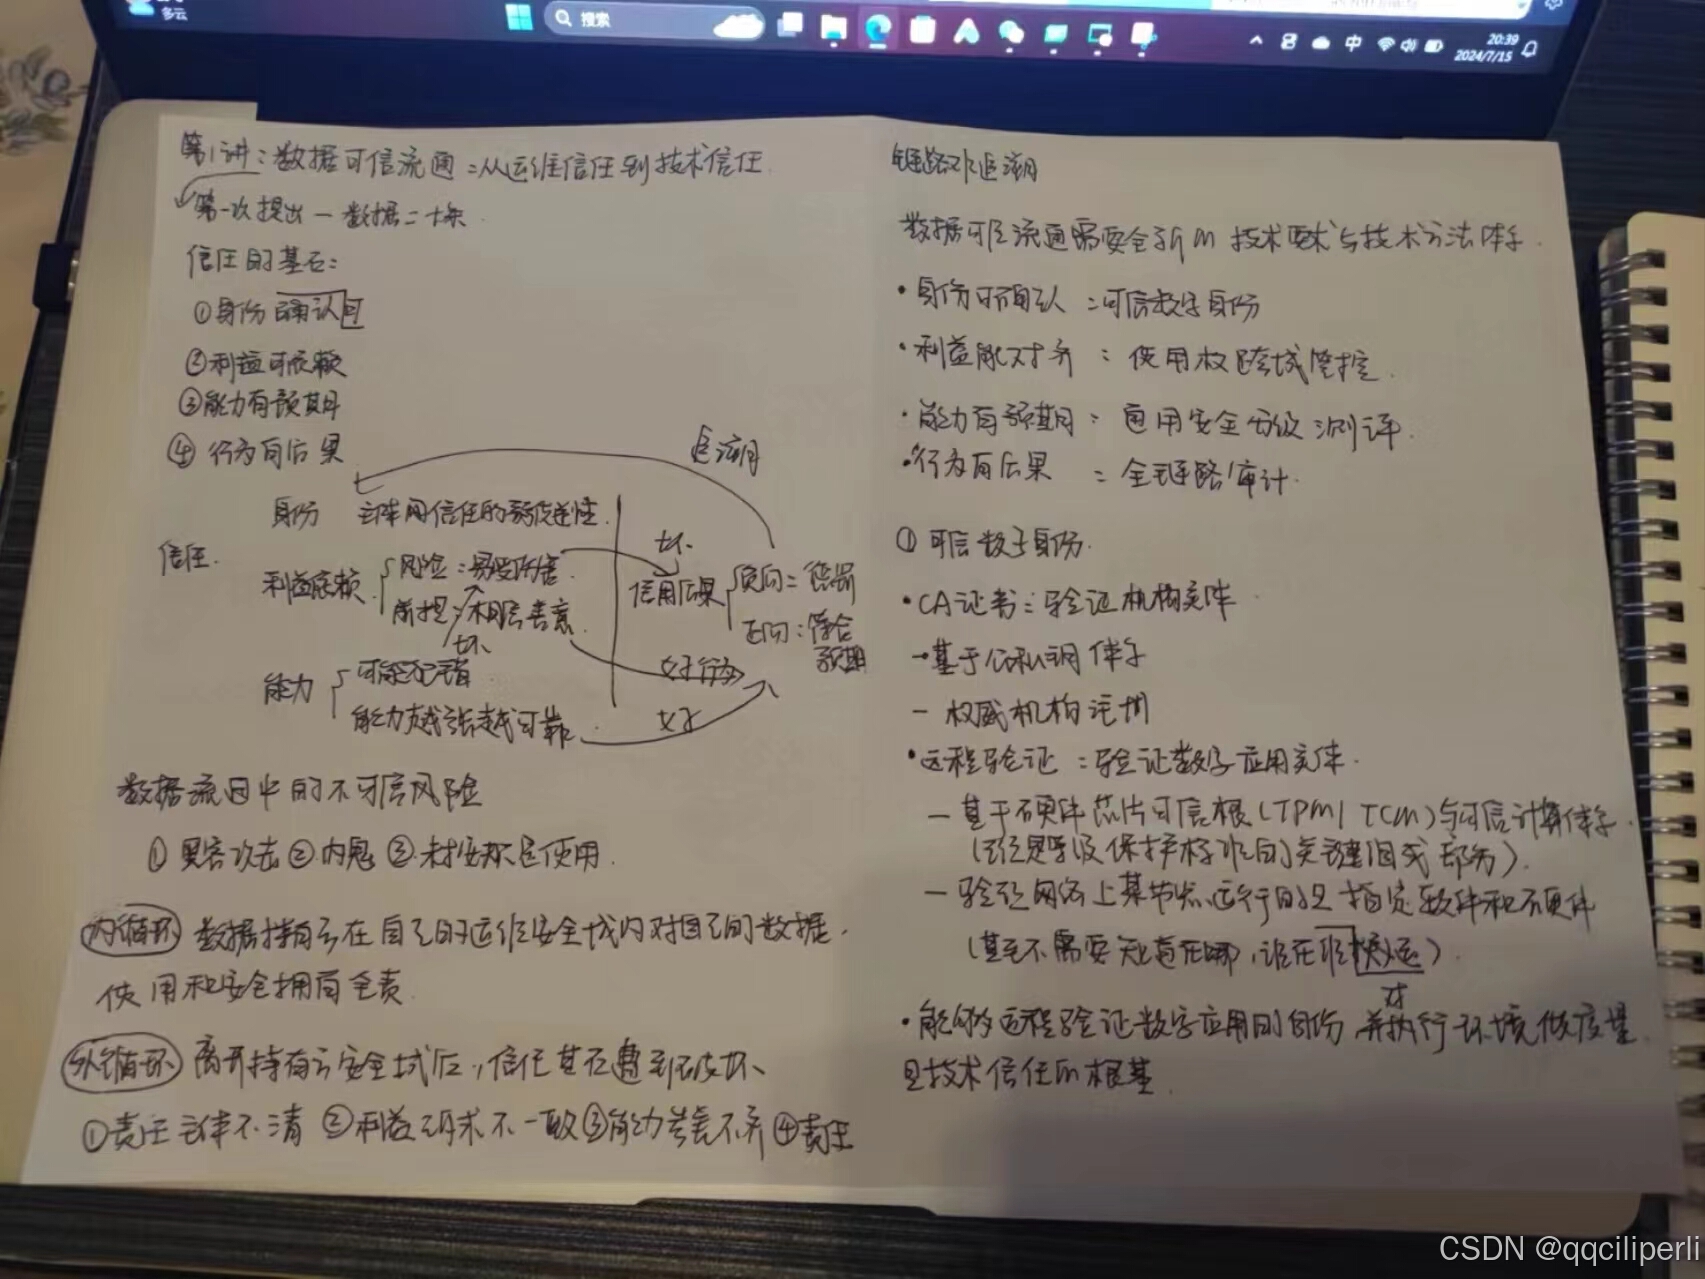 多云
搜索
中
20:39
2024/7/15
第1讲：数据可信流通：从运维信任到技术信任
第一次提出—数据二十条
信任的基石：
①身份确认可
②利益可依赖
③能力有预期
④行为有后果
追溯
身份 主体间信任的
信任
利益依赖 风险：易受伤害
前提：相信善意
坏
能力 可能犯错
能力越强越可靠
坏
信用后果 负向：惩罚
正向：符合预期
好行为
好
数据流通中的不可信风险
①黑客攻击②内鬼③未按规定使用
内循环 数据持有者在自己的运维安全域内对自己的数据
使用和安全拥有全责
外循环 离开持有者安全域后，信任基石遭到破坏、
①责任主体不清②利益诉求不一致③能力差不齐④责任
链路难追溯
数据可信流通需要全新的技术要求与技术方法体系
·身份可确认：可信数字身份
·利益能对齐：使用权跨域管控
·能力有预期：通用安全分级测评
·行为有后果：全链路审计
①可信数字身份
·CA证书：验证机构实体
-基于公私钥体系
-权威机构注册
·远程验证：验证数字应用实体
-基于硬件芯片可信根(TPM/TCM)与可信计算体系
-验证网络上某节点运行的是指定软件和硬件
(甚至不需要知道在哪，谁在运维)
对
·能够远程验证数字应用的身份并执行环境做度量
是技术信任的根基
CSDN @qqciliperli